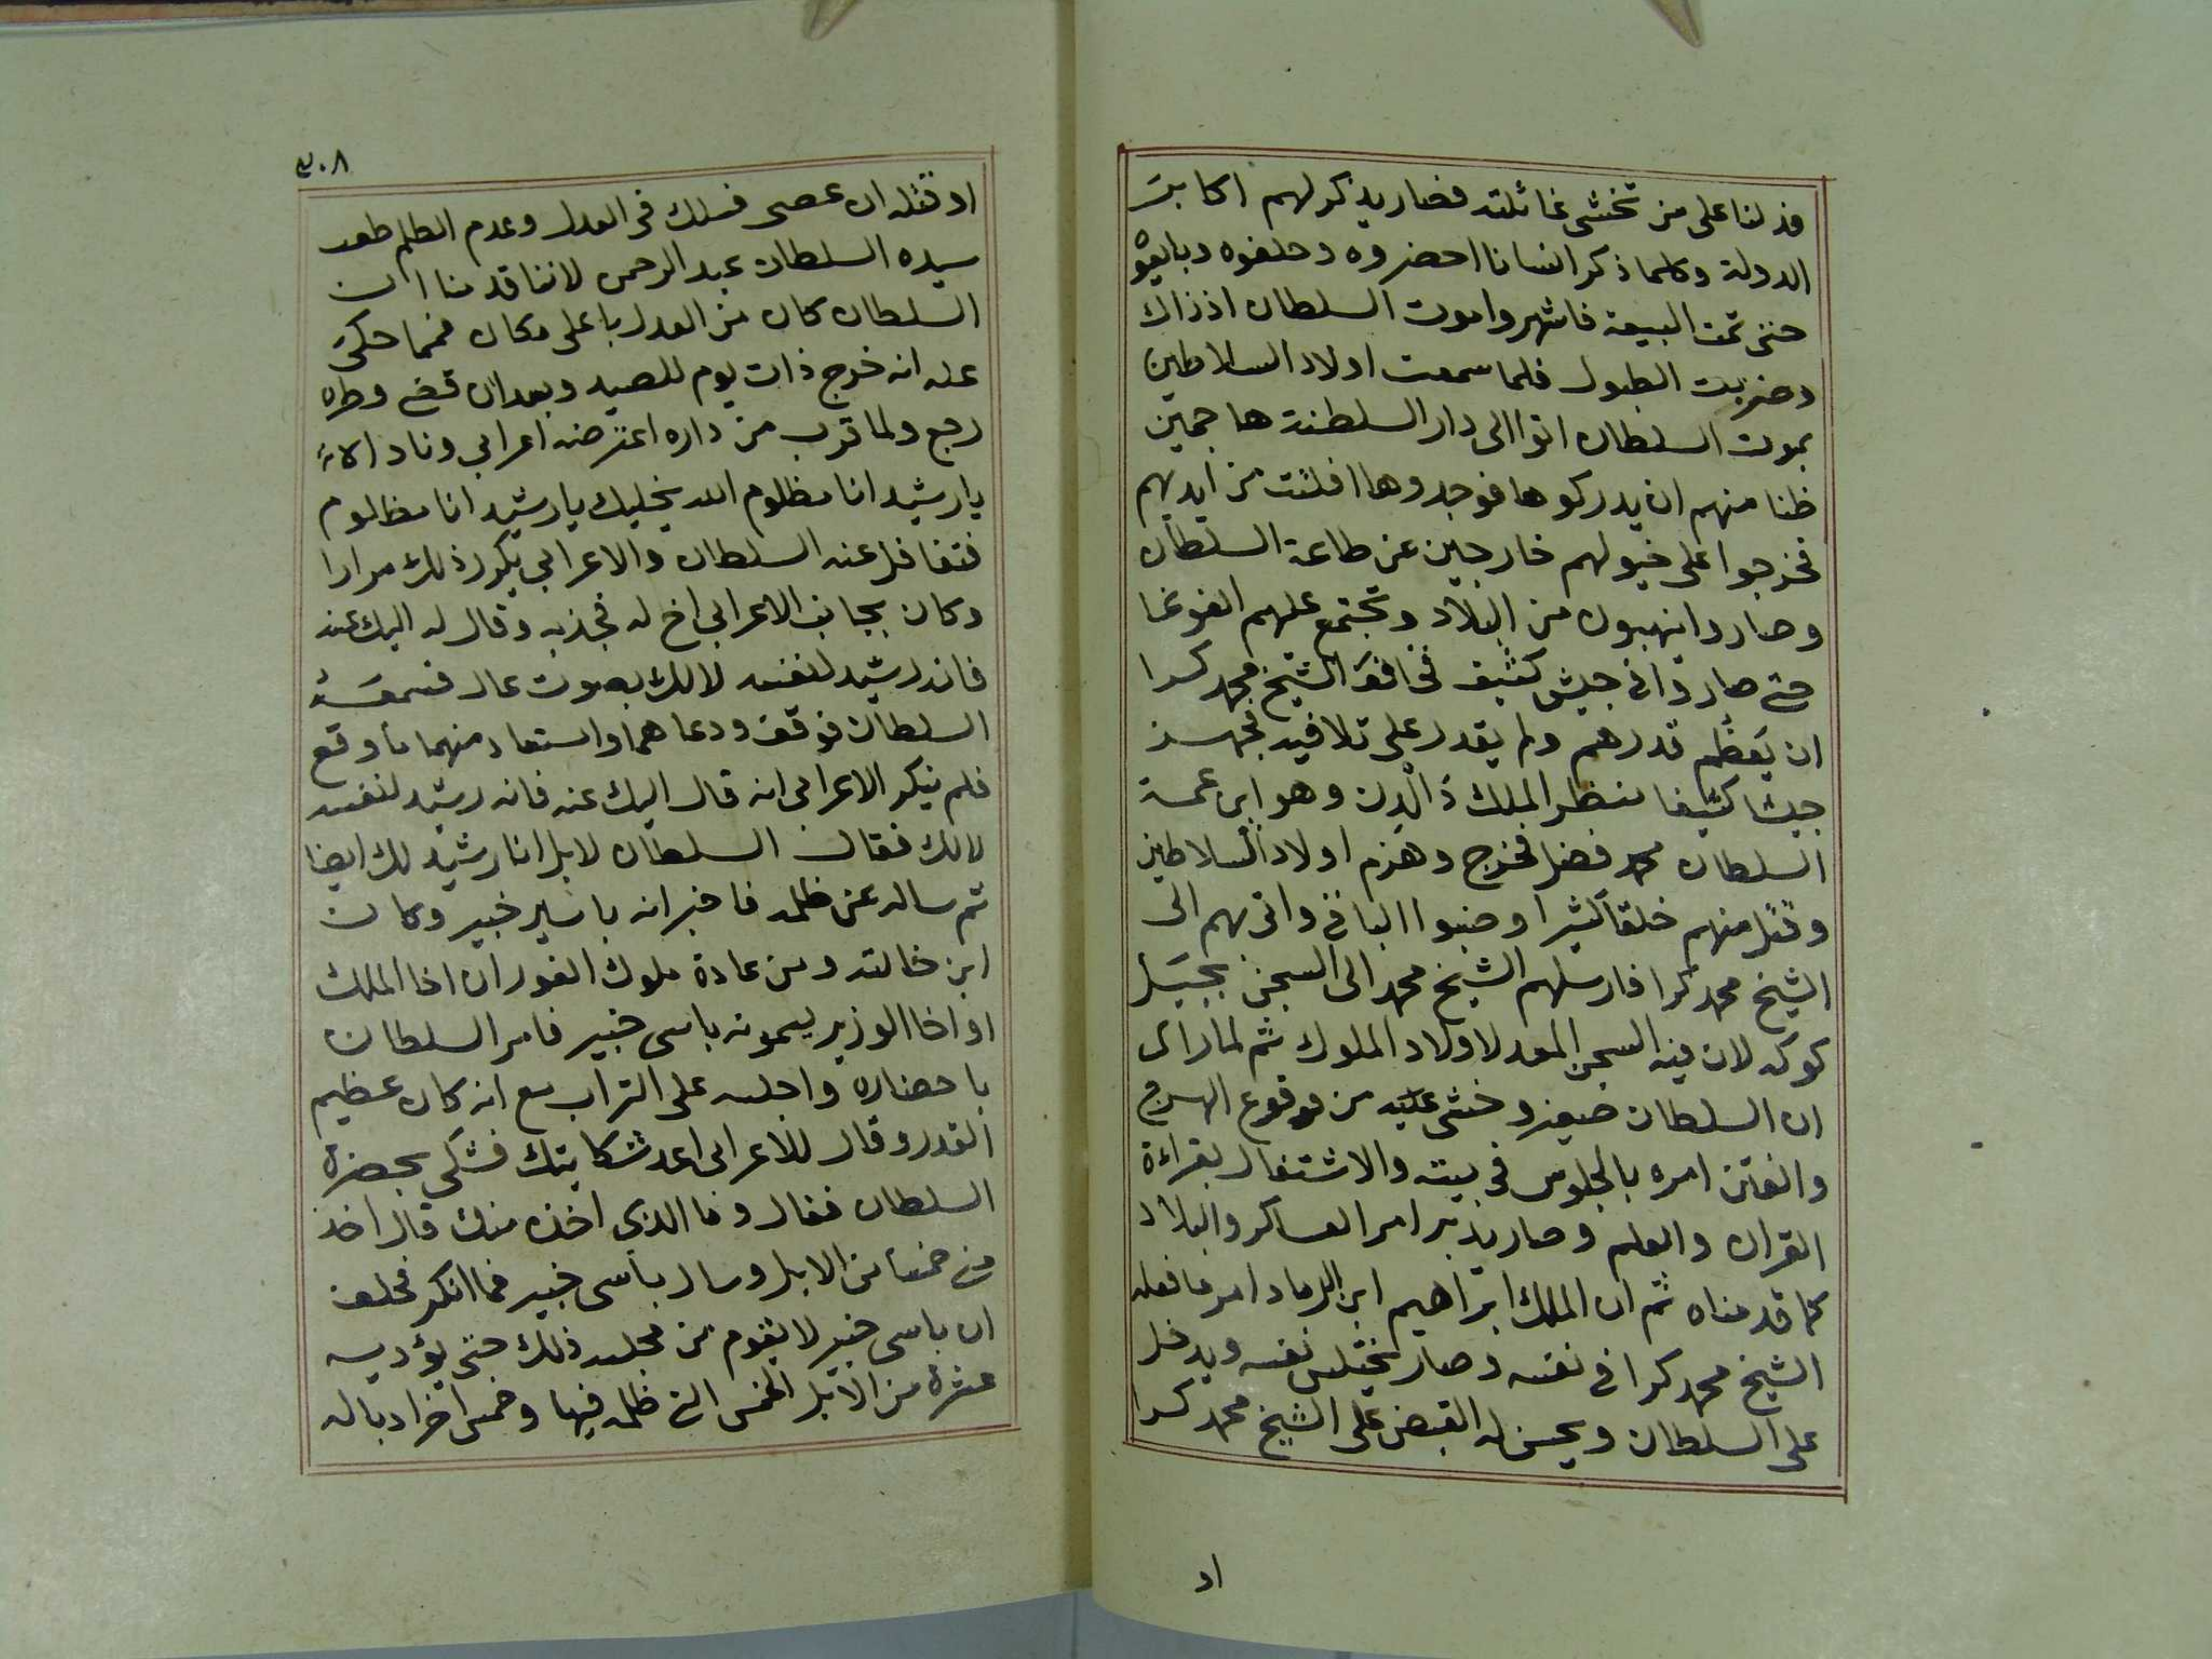 فدلنا على من تخشى غائلته فصار يذكر لهم اكابر
الدولة وكلما ذكر انسانا احضروه وحلفوه وبايعوه
حتى تمت البيعة فاشهروا موت السلطان اذ ذاك
وضربت الطبول فلما سمعت اولاد السلاطين
بموت السلطان اتوا الى دار السلطنة هاجمين
ظنا منهم ان يدركوها فوجدوها افلتت من ايديهم
فخرجوا على خيولهم خارجين عن طاعة السلطان
وصاروا ينهبون من البلاد وتجتمع عليهم الغوغا
حتى صاروا في جيش كثيف فخاف الشيخ محمد كرا
ان يعظم قدرهم ولم يقدر على تلافيه فجهز
جيشا كثيفا بنظر الملك دَالدِن وهو ابن عمة
السلطان محمد فضل فخرج وهزم اولاد السلاطين
وقتل منهم خلقا كثيرا وضبوا الباقي واتى بهم الى
الشيخ محمد كرا فارسلهم الشيخ محمد الى السجن بجبل
كوكه لان فيه السجن المعد لاولاد الملوك ثم لما راى
ان السلطان صغير وخشى عليه من وقوع الهرج
والفتن امره بالجلوس في بيته والاشتغال بقراءة
القران والعلم وصار يدبر امر العساكر والبلاد
كما قدمناه ثم ان الملك ابراهيم ابن الرماد امر ما فعله
الشيخ محمد كرا في نفسه وصار يختلس نفسه ويدخل
على السلطان ويحسن له القبض على الشيخ محمد كرا
او
٣٠٨
او قتله ان عصى فسلك في العدل وعدم الظلم طور
سيده السلطان عبد الرحمن لاننا قدمنا ان
السلطان كان من العدل باعلى مكان فمما حكى
عنه انه خرج ذات يوم للصيد وبعد ان قضى وطره
رجع ولما قرب من داره اعترضه اعرابي وناداه
يا رشيد انا مظلوم الله يخليك يا رشيد انا مظلوم
فتغافل عنه السلطان والاعرابي يكرر ذلك مرارا
وكان بجانب الاعرابي اخ له فجذبه وقال له اليك عنه
فانه رشيد لنفسه لا لك بصوت عال فسمعه
السلطان فوقف ودعا هما واستعاد منهما ما وقع
فلم ينكر الاعرابي انه قال اليك عنه فانه رشيد لنفسه
لا لك فقال السلطان لا بل انا رشيد لك ايضا
ثم ساله عن ظلمه فاخبر انه باسى خبير وكان
ابن خالته ومن عادة ملوك الفور ان اخا الملك
او اخا الوزير يسمونه باسى خبير فامر السلطان
باحضاره واجلسه على التراب مع انه كان عظيم
القدر وقال للاعرابي اعد شكايتك فشكى بحضرة
السلطان فقال وما الذي اخذه منك قال اخذ
منى خمسا من الابل وسال باسى خبير فما انكر فحلف
ان باسى خبير لا يقوم من مجلسه ذلك حتى يؤديه
عشرة من الابل الخمس التى ظلمه فيها وخمس اخر ادبا له